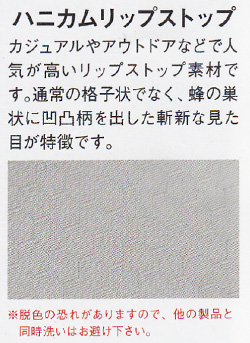 ハニカムリップストップ
カジュアルやアウトドアなどで人
気が高いリップストップ素材で
す。通常の格子状でなく、蜂の巣
状に凹凸柄を出した斬新な見た
目が特徴です。
※脱色の恐れがありますので、他の製品と
同時洗いはお避け下さい。